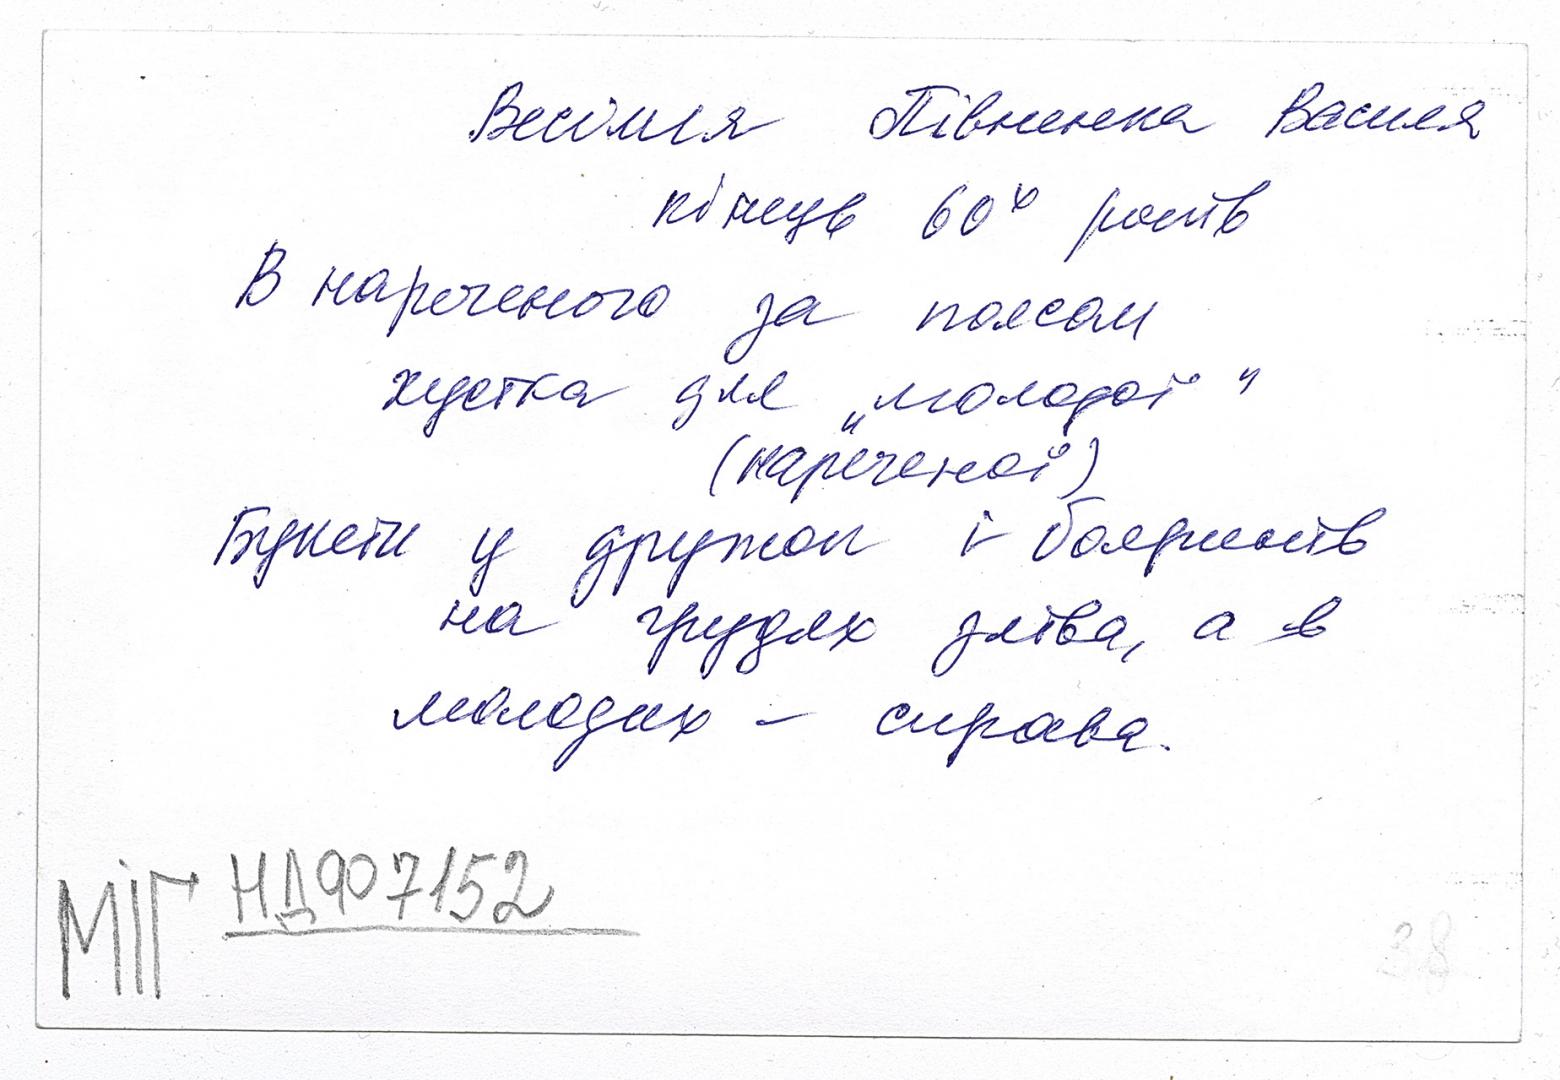 Весілля Півненка Василя
кінець 60х років
В нареченого за поясом
хустка для „молодої"
(нареченої)
Букети у дружок і бояринів
на грудях зліва, а в
молодих – справа.
МІГ НД907152
38